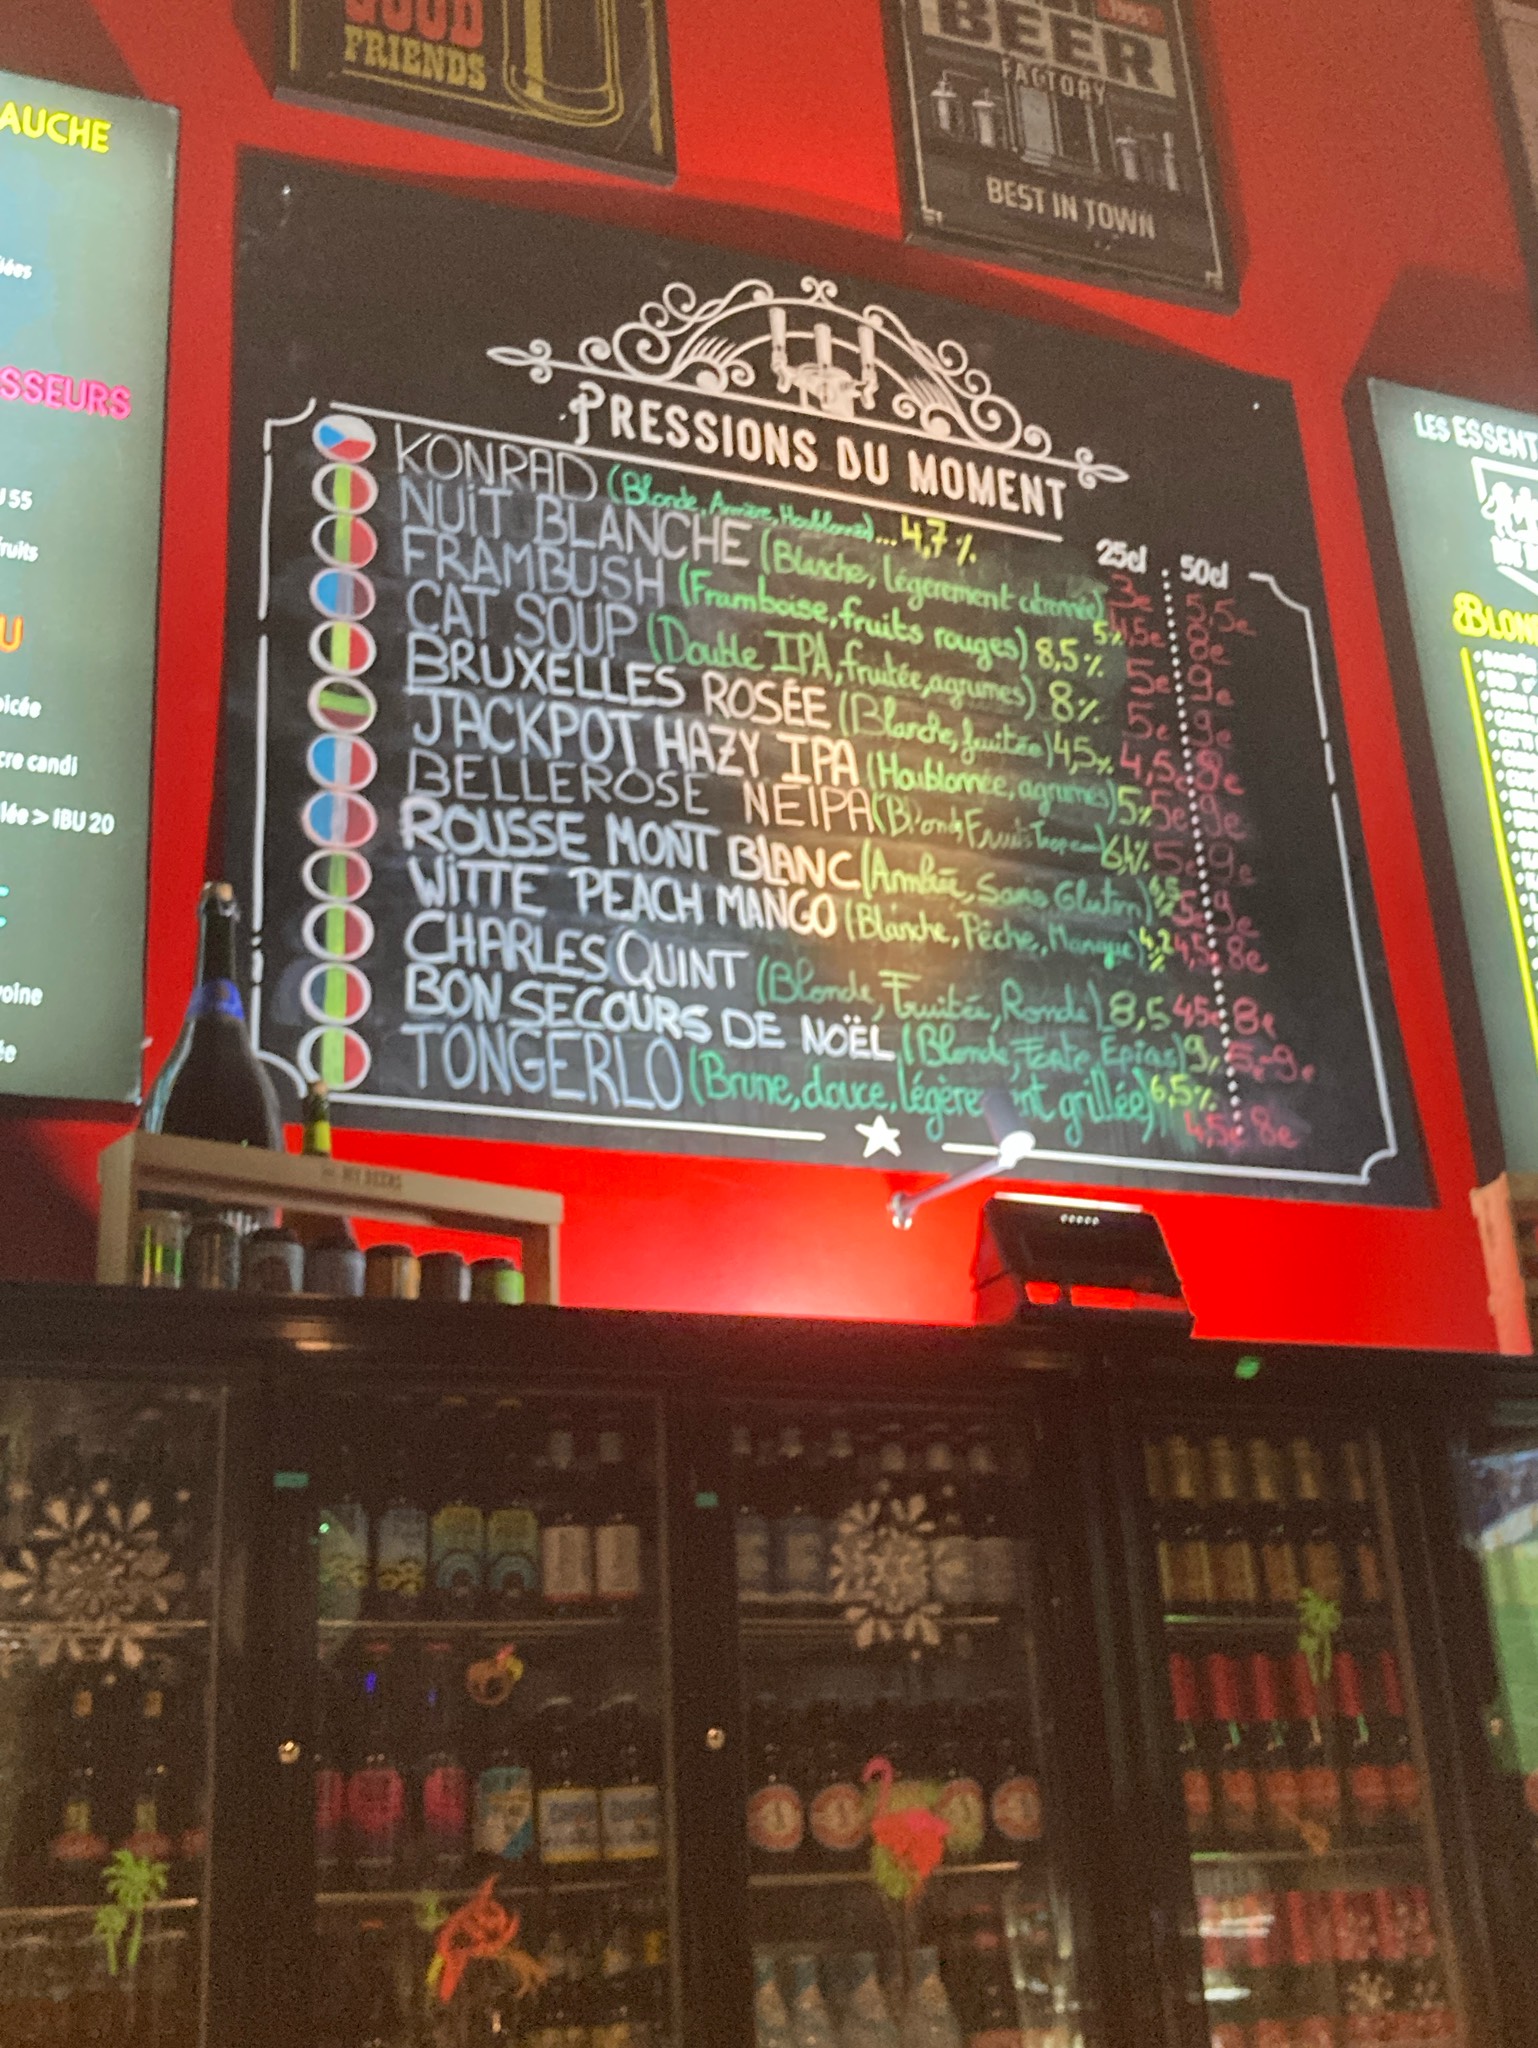 GOOD
FRIENDS
BEER
FACTORY
BEST IN TOWN
AUCHE
SSEURS
U 55
fruits
U
picée
cre candi
lée > IBU 20
voine
PRESSIONS DU MOMENT
25cl 50cl
KONRAD (Blonde, Amère, Houblonnée)...4,7% 3e 5,5e
NUIT BLANCHE (Blanche, légèrement citronnée) 5% 4,5e 8e
FRAMBUSH (Framboise, fruits rouges) 8,5% 5e 9e
CAT SOUP (Double IPA, fruitée, agrumes) 8% 5e 9e
BRUXELLES ROSÉE (Blanche, fruitée) 4,5% 4,5e 8e
JACKPOT HAZY IPA (Houblonnée, agrumes) 5% 5e 9e
BELLEROSE NEIPA (Blonde, Fruits 5e 9e
ROUSSE MONT BLANC (Ambrée, Sans Gluten) 5e 9e
WITTE PEACH MANGO (Blanche, Pêche, Mangue) 4,2% 4,5e 8e
CHARLES QUINT (Blonde, Fruitée, Ronde) 8,5 4,5e 8e
BON SECOURS DE NOËL (Blonde, Forte, Epices) 5e 9e
TONGERLO (Brune, douce, légère nt grillée) 6,5% 4,5e 8e
LES ESSENT
BLON
MY BEERS